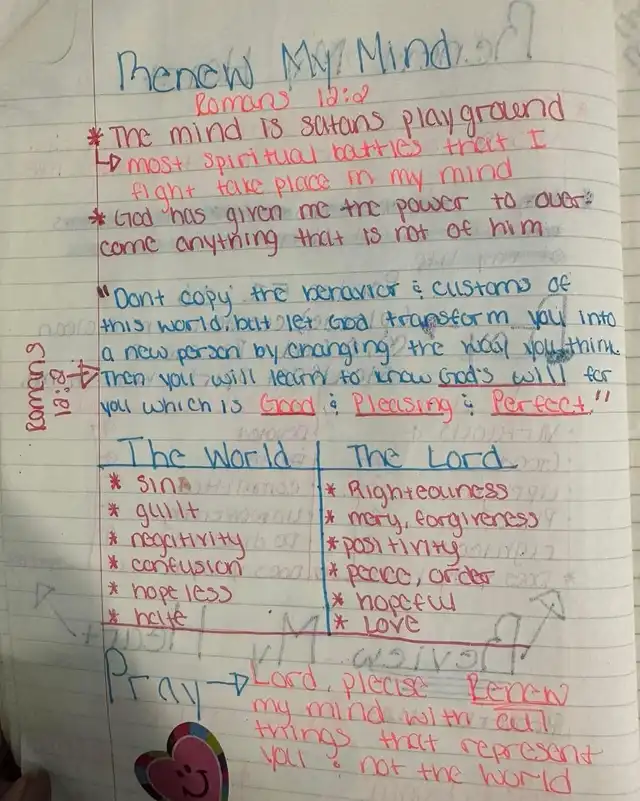 Renew My Mind
Romans 12:2
* The mind is satans playground
↳ most spiritual battles that I
fight take place in my mind
* God has given me the power to over-
come anything that is not of him
"Dont copy the behavior & customs of
this world, but let God transform you into
a new person by changing the way you think.
Then you will learn to know God's will for
you which is Good & Pleasing & Perfect."
Romans
12:2
The World | The Lord
* sin * Righteouness
* guilt * mery, forgiveness
* negitivity * positivity
* confusion * peace, order
* hopeless * hopeful
* hate * Love
Pray → Lord, please Renew
my mind with all
things that represent
you & not the world